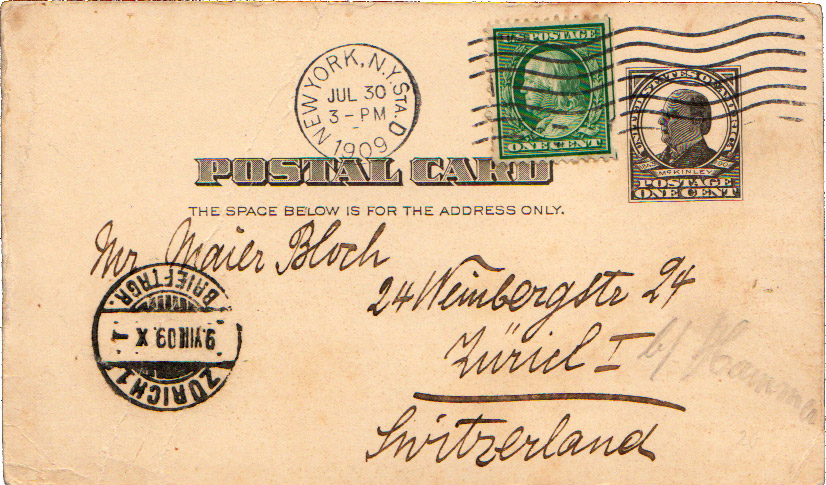 U.S. POSTAGE
ONE CENT
UNITED STATES OF AMERICA
McKINLEY
POSTAGE
ONE CENT
NEW YORK, N.Y. STA. D
JUL 30
3 - PM
1909
POSTAL CARD
THE SPACE BELOW IS FOR THE ADDRESS ONLY.
Mr Maier Bloch
24 Weinbergstr 24
Zürich I
Switzerland
BRIEFTRGR.
9.VIII 09. X
ZÜRICH 1